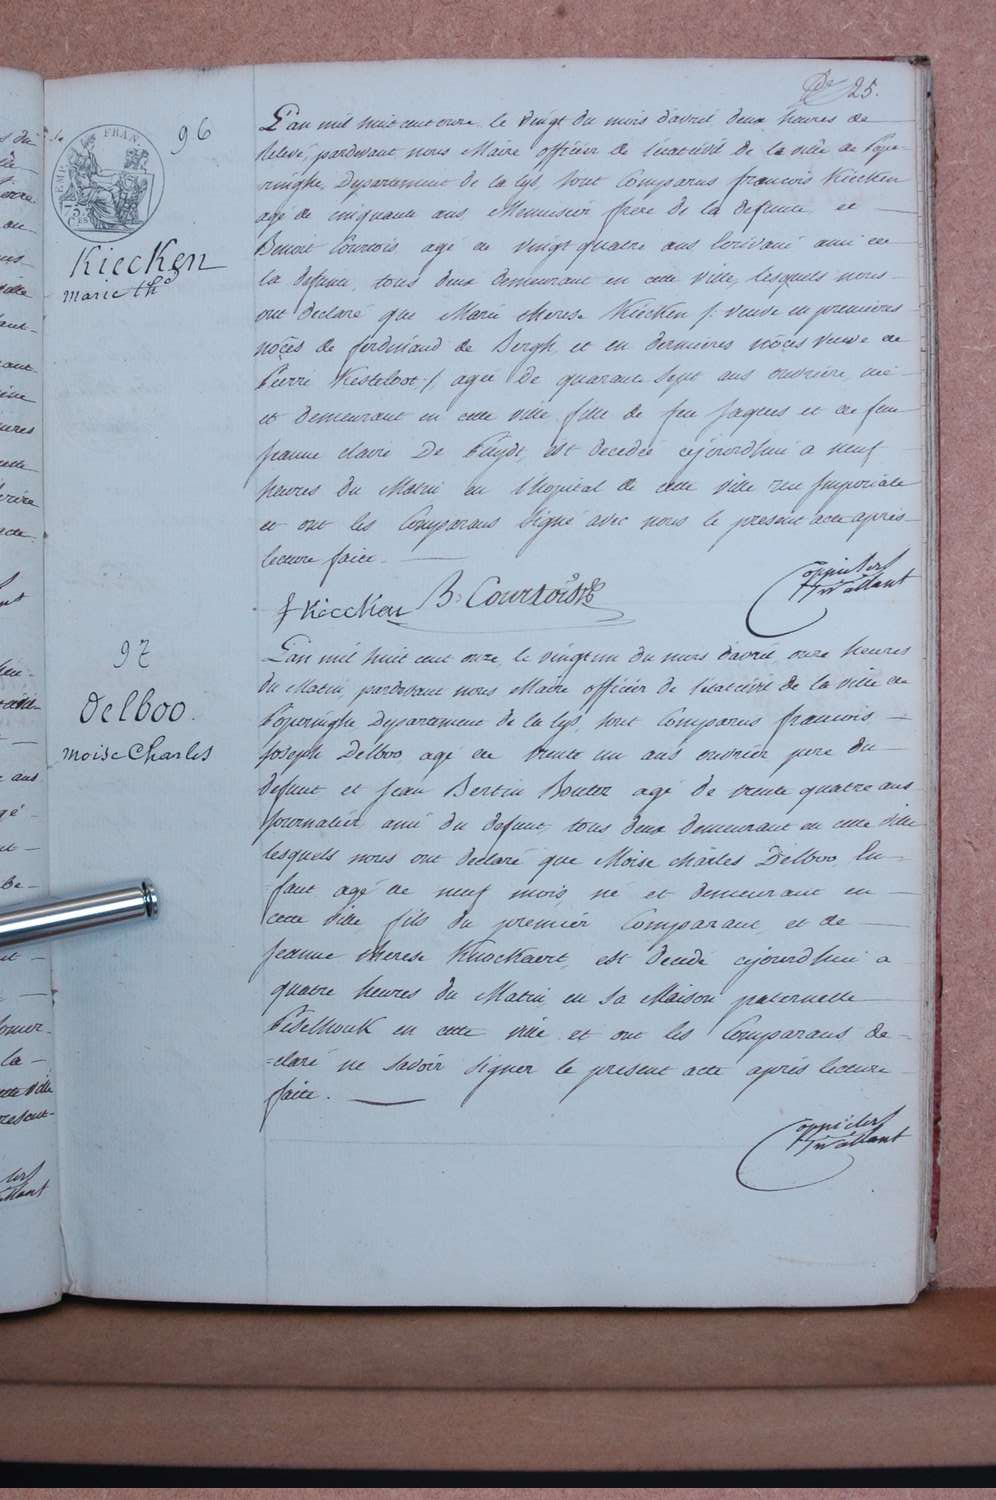 25.
96
Kiecken
marie th.e
L'an mil huit cent onze le vingt du mois d'avril deux heures de
Relevé, pardevant nous Maire officier de l'état civil de la ville de Pope-
ringhe, Departement de la Lys, sont Comparus francois Kiecken
agé de cinquante ans, Menuisier frere de la defunte, et —
Benoit Courtois, agé de vingt quatre ans Ecrivain ami de
la defunte, tous deux demeurant en cette ville, lesquels nous
ont declaré que Marie therese Kiecken /: veuve en premieres
nôces de ferdinand de Bergh, et en dernieres nôces veuve de
Pierre Kesteloot :/ agée de quarante sept ans ouvriere, née
et demeurant en cette ville, fille de feu Jaques et de feue
jeanne claire De Puydt, est decedée cejourd'hui a neuf
heures du Matin en l'hopital de cette ville rue Imperiale
et ont les Comparans signé avec nous le present acte après
lecture faite. —
f Kiecken B. Courtois
97
Delboo.
moise Charles
L'an mil huit cent onze, le vingt un du mois d'avril, onze heures
du Matin, pardevant nous Maire officier de l'état civil de la ville de
Poperinghe Departement de la Lys, sont Comparus francois —
Joseph Delboo, agé de trente un ans ouvrier pere du
defunt et Jean Bertin Boutez agé de trente quatre ans
Journalier, ami du defunt, tous deux demeurant en cette ville
lesquels nous ont declaré que Moise charles Delboo, En-
fant agé de neuf mois, né et demeurant en —
cette ville fils du premier Comparant, et de —
jeanne therese Knockaert, est decedé cejourd'hui a
quatre heures du Matin, en sa Maison paternelle
Peselhouk en cette ville et ont les Comparans de-
=claré ne savoir signer le present acte après lecture
faite. —